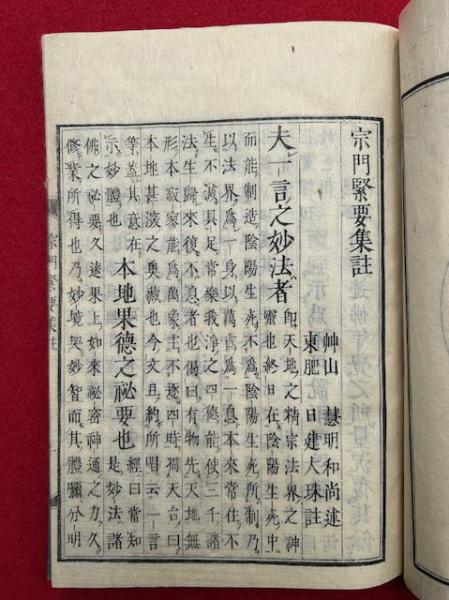 宗門緊要集註
艸山 慧明和尚述
東肥 日建大珠註
夫一言之妙法者 即天地之精宗法界之神
靈也終日在陰陽生死中
而能制造陰陽生死不爲陰陽生死所制乃
以法界爲一身以萬言爲一息本來常住不
生不滅具足常樂我淨之四德能使三千諸
法生歸來復不息者也偈曰有物先天地無
形本寂寥能爲萬象主不逐四時凋天台曰
本地甚深之奧藏也今文且約所唱云一言
等蓋其意在
示妙體也
本地果德之祕要也 經曰當知
是妙法諸
佛之祕要久遠果上如來祕密神通之力久
修業所得也乃妙境契妙智而其體彌分明
宗門緊要集註